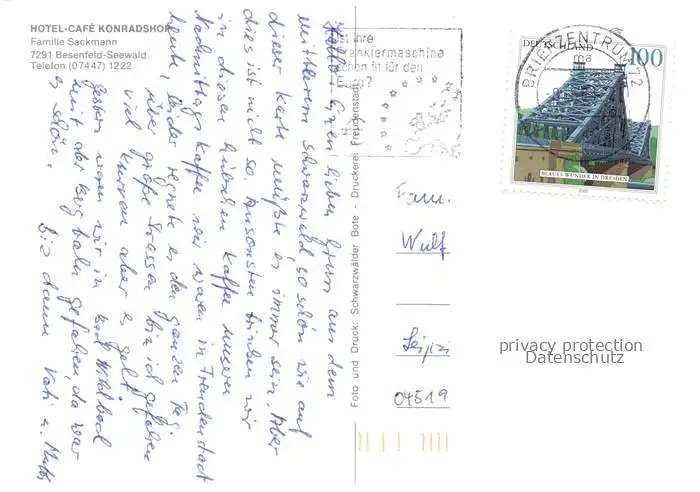 HOTEL-CAFÉ KONRADSHOF
Familie Sackmann
7291 Besenfeld-Seewald
Telefon (07447) 1222
Hallo! Einen lieben Gruß aus dem
weiterem Schwarzwald, so schön wie auf
dieser Karte müßte es immer sein. Aber
dies ist nicht so. Ansonsten trinken wir
in diesem hübschen Kaffee unseren
Nachmittagskaffee. wir waren in Freudenstadt
heute, leider regnete es den ganzen Tag
über große Strassen bin ich gefahren
viel Kurven aber es geht.
Gestern waren wir in Bad Wildbad
mit der Bergbahn gefahren, da war
es schön. Bis dann Kati u.
Foto und Druck: Schwarzwälder Bote - Druckerei Freudenstadt
Ist Ihre
Frankiermaschine
schon fit für den
Euro?
BRIEFZENTRUM 72
ma
DEUTSCHLAND
100
BLAUES WUNDER IN DRESDEN
2000
Fam.
Wulf
Leipzi
04519
privacy protection
Datenschutz